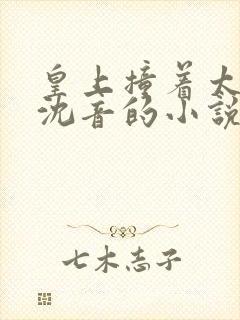 皇上撞着太
沈音的小說
七木志子